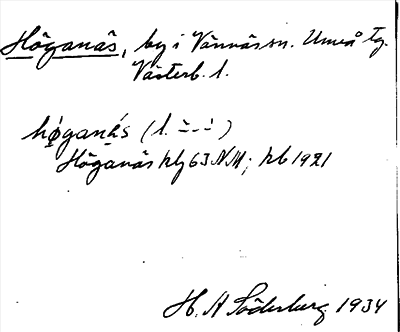 Höganäs, by i Vännäs sn. Umeå tg.
Västerb. l.
høganäs (l. ⏑̀–⏑́)
Höganäs klj 63 NM; kb 1921
H. A Söderberg 1934